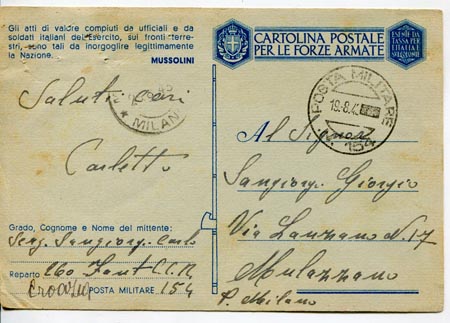 Gli atti di valore compiuti da ufficiali e da
soldati italiani dell'Esercito, sui fronti terre-
stri, sono tali da inorgoglire legittimamente
la Nazione.
MUSSOLINI
Saluti cari
Carletto
MILAN
Grado, Cognome e Nome del mittente:
Serg. Sangiorgi Carlo
Reparto 260 Fant C.C.R
Croazia POSTA MILITARE 154
CARTOLINA POSTALE
PER LE FORZE ARMATE
ESENTE DA
TASSA PER
L'ITALIA E
POSTA MILITARE
19.8.4
N. 154
Al Signor
Sangiorgi Giorgio
Via Lanzano N. 17
Mulazzano
P. Milano